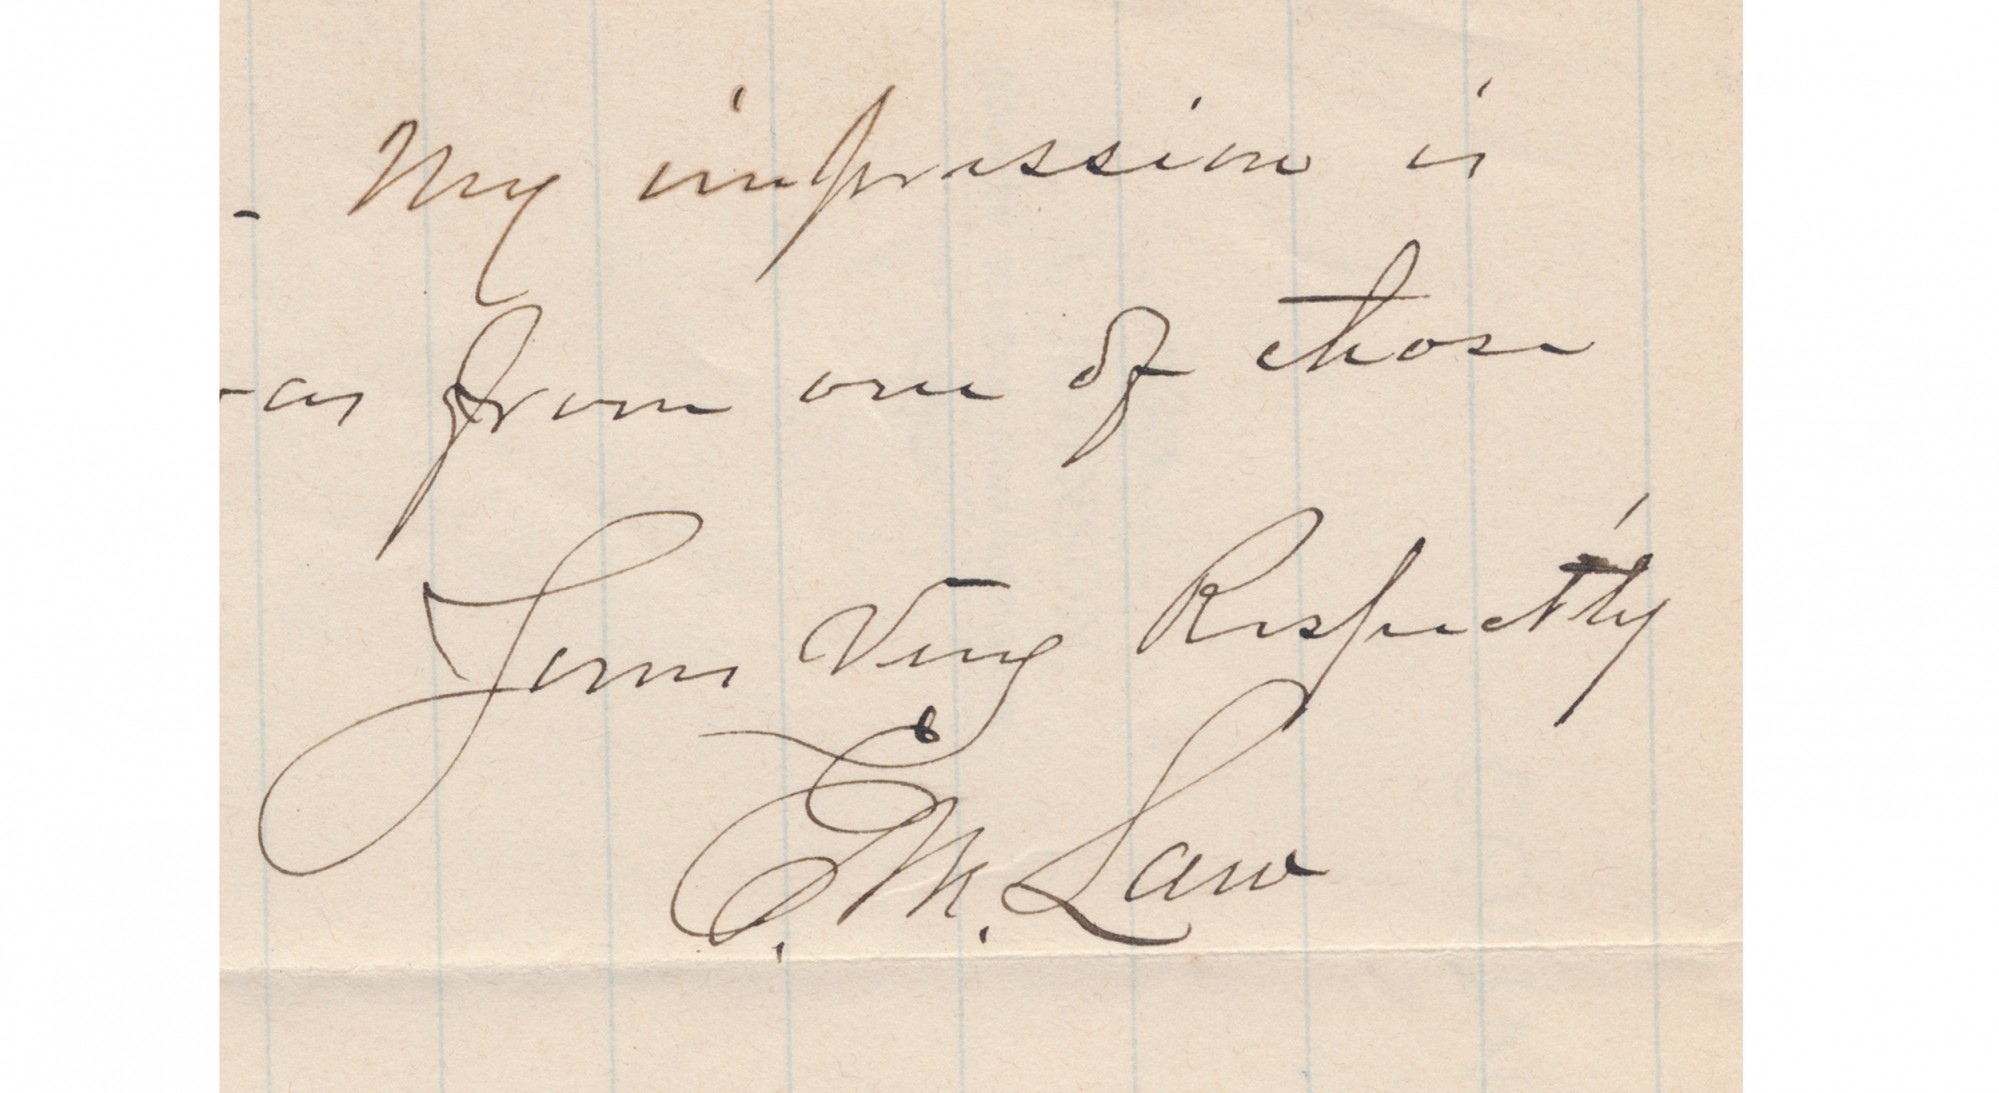 - My impression is
was from one of those
Yours Very Respect'ly
E. M. Law